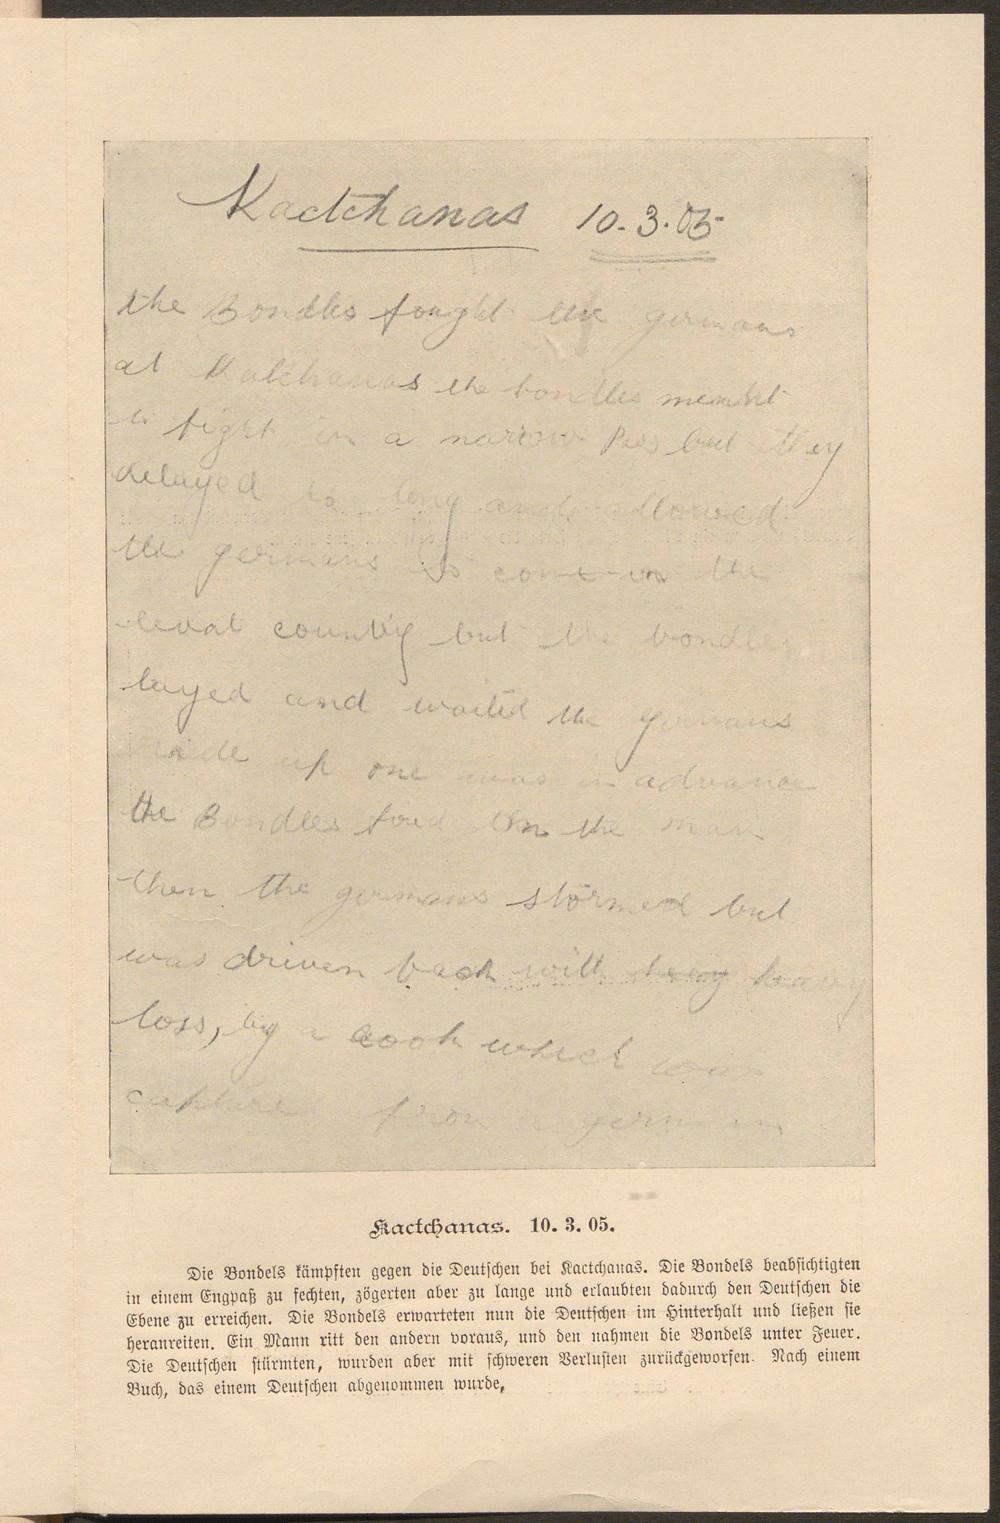 Kactchanas 10.3.05
the Bondles fought the germans
at Katchanas the bondles meant
to fight in a narrow Pass but they
delayed to long and allowed
the germans to come in the
levat country but the bondles
layed and waited the germans
ride up one was in advance
the Bondles fired on the man
then the germans stormed but
was driven back with heavy
loss, by a book which was
capture from a german
Kactchanas. 10. 3. 05.
Die Bondels kämpften gegen die Deutschen bei Kactchanas. Die Bondels beabsichtigten
in einem Engpaß zu fechten, zögerten aber zu lange und erlaubten dadurch den Deutschen die
Ebene zu erreichen. Die Bondels erwarteten nun die Deutschen im Hinterhalt und ließen sie
heranreiten. Ein Mann ritt den andern voraus, und den nahmen die Bondels unter Feuer.
Die Deutschen stürmten, wurden aber mit schweren Verlusten zurückgeworfen. Nach einem
Buch, das einem Deutschen abgenommen wurde,